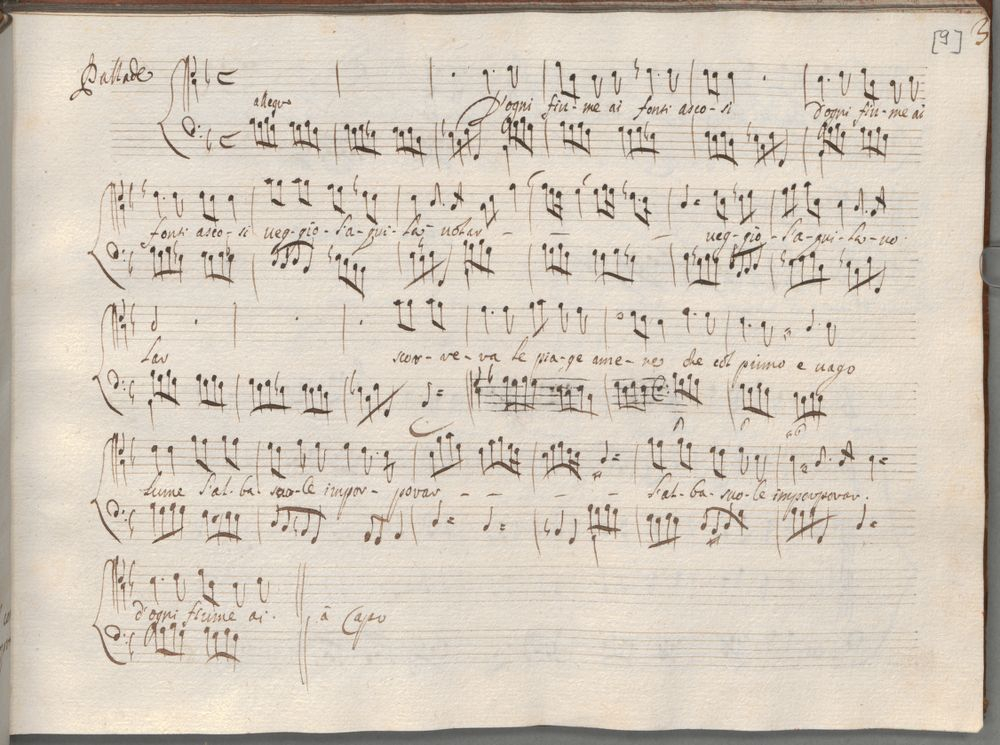 [9] 3
Pallade
allegro
D'ogni fiu-me ai fonti asco-si d'ogni fiu-me ai
fonti asco-si veg-gio-l'a-qui-la-volar - - - veg-gio-l'a-qui-la-vo-
lar scor-re-va le pia-ge ame-ne che col primo e vago
lume l'al-ba suo-le impor-porar - - - - l'al-ba-suo-le imporporar.
d'ogni fiume ai. à Capo